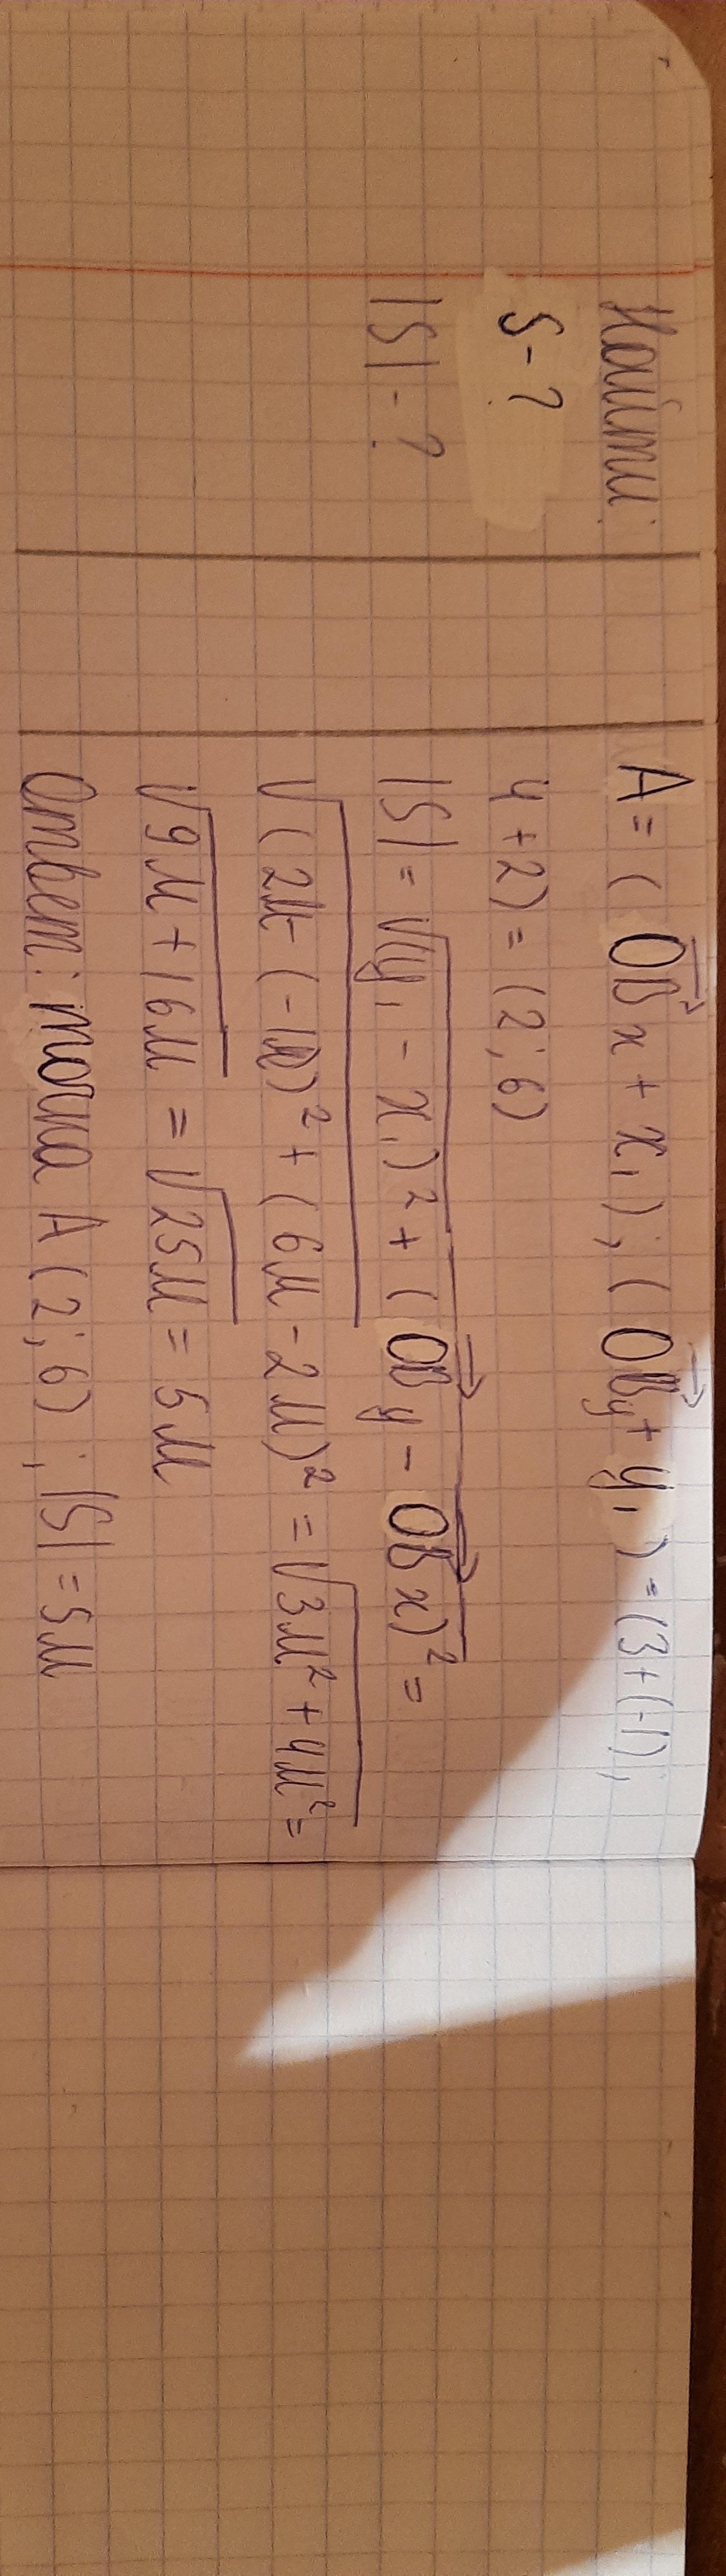 Найти:
S - ?
|S| - ?
A = (OBx + x₁); (OBy + y₁) = (3+(-1);
4+2) = (2; 6)
|S| = √(y₁ - x₁)² + (OBy - OBx)² =
√(2м - (-1м)² + (6м - 2м)² = √3м² + 4м² =
√9м + 16м = √25м = 5м
Ответ: точка A (2; 6); |S| = 5м